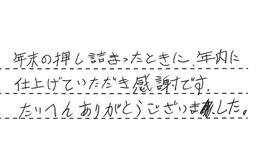 年末の押し詰まったときに、年内に
仕上げていただき感謝です。
たいへんありがとうございました。